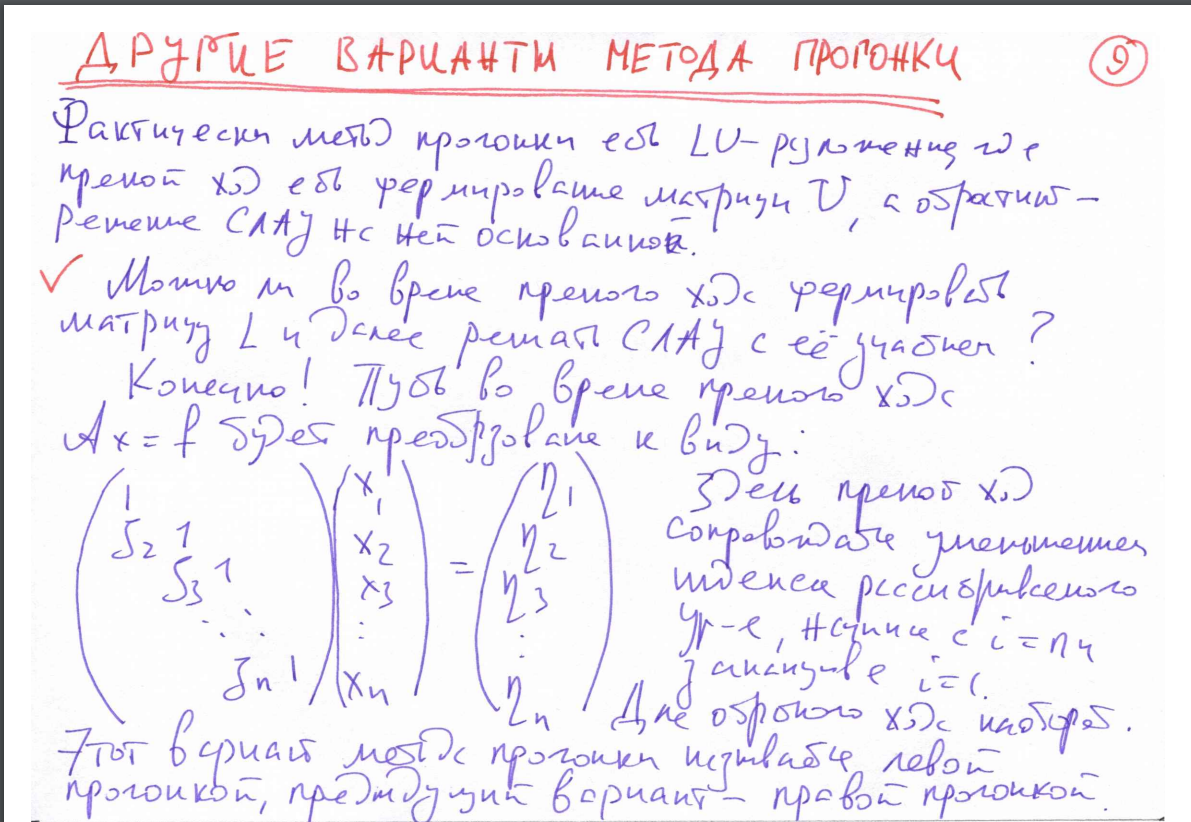 ДРУГИЕ ВАРИАНТЫ МЕТОДА ПРОГОНКИ 9
Фактически метод прогонки есть LU-разложение, где
прямой ход есть формирование матрицы U, а обратный -
решение СЛАУ на ней основанной.
✓ Можно ли во время прямого хода формировать
матрицу L и далее решать СЛАУ с её участием?
Конечно! Пусть во время прямого хода
Ax = f будет преобразована к виду:
1 x₁ η₁
ζ₂ 1 x₂ = η₂
ζ₃ 1 x₃ η₃
⋱ ⋮ ⋮
ζₙ 1 xₙ ηₙ
Здесь прямой ход
сопровождается уменьшением
индекса рассматриваемого
ур-я, начиная с i = n и
заканчивая i = 1.
Для обратного хода наоборот.
Этот вариант метода прогонки называется левой
прогонкой, предыдущий вариант - правой прогонкой.